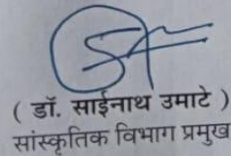 ( डॉ. साईनाथ उमाटे )
सांस्कृतिक विभाग प्रमुख